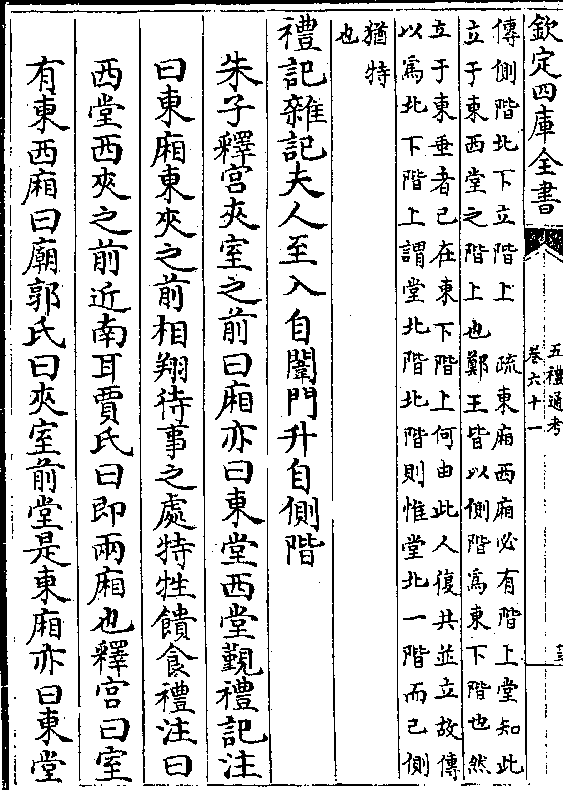 欽定四庫全書
五禮通考
卷六十一
傳側階北下立階上　疏東廂西廂必有階上堂知此
立于東西堂之階上也鄭王皆以側階為東下階也然
立于東垂者已在東下階上何由此人復共並立故傳
以為北下階上謂堂北階北階則惟堂北一階而已側
猶特
也
禮記雜記夫人至入自闈門升自側階
朱子釋宫夾室之前曰廂亦曰東堂西堂覲禮記注
曰東廂東夾之前相翔待事之處特牲饋食禮注曰
西堂西夾之前近南耳賈氏曰即兩廂也釋宫曰室
有東西廂曰廟郭氏曰夾室前堂是東廂亦曰東堂